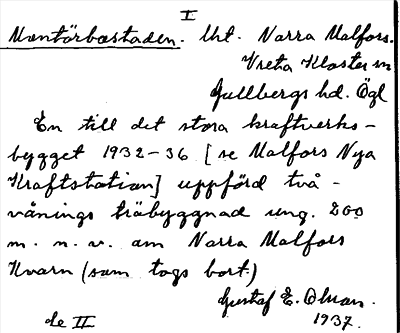 I
Montörbostaden. Uht. Norra Malfors.
Vreta Kloster sn
Gullbergs hd. Ögl
En till det stora kraftverks-
bygget 1932-36 [se Malfors Nya
Kraftstation] uppförd två-
vånings träbyggnad ung. 200
m. n. v. om Norra Malfors
Kvarn (som togs bort.)
Gustaf E. Olsson.
1937.
de II